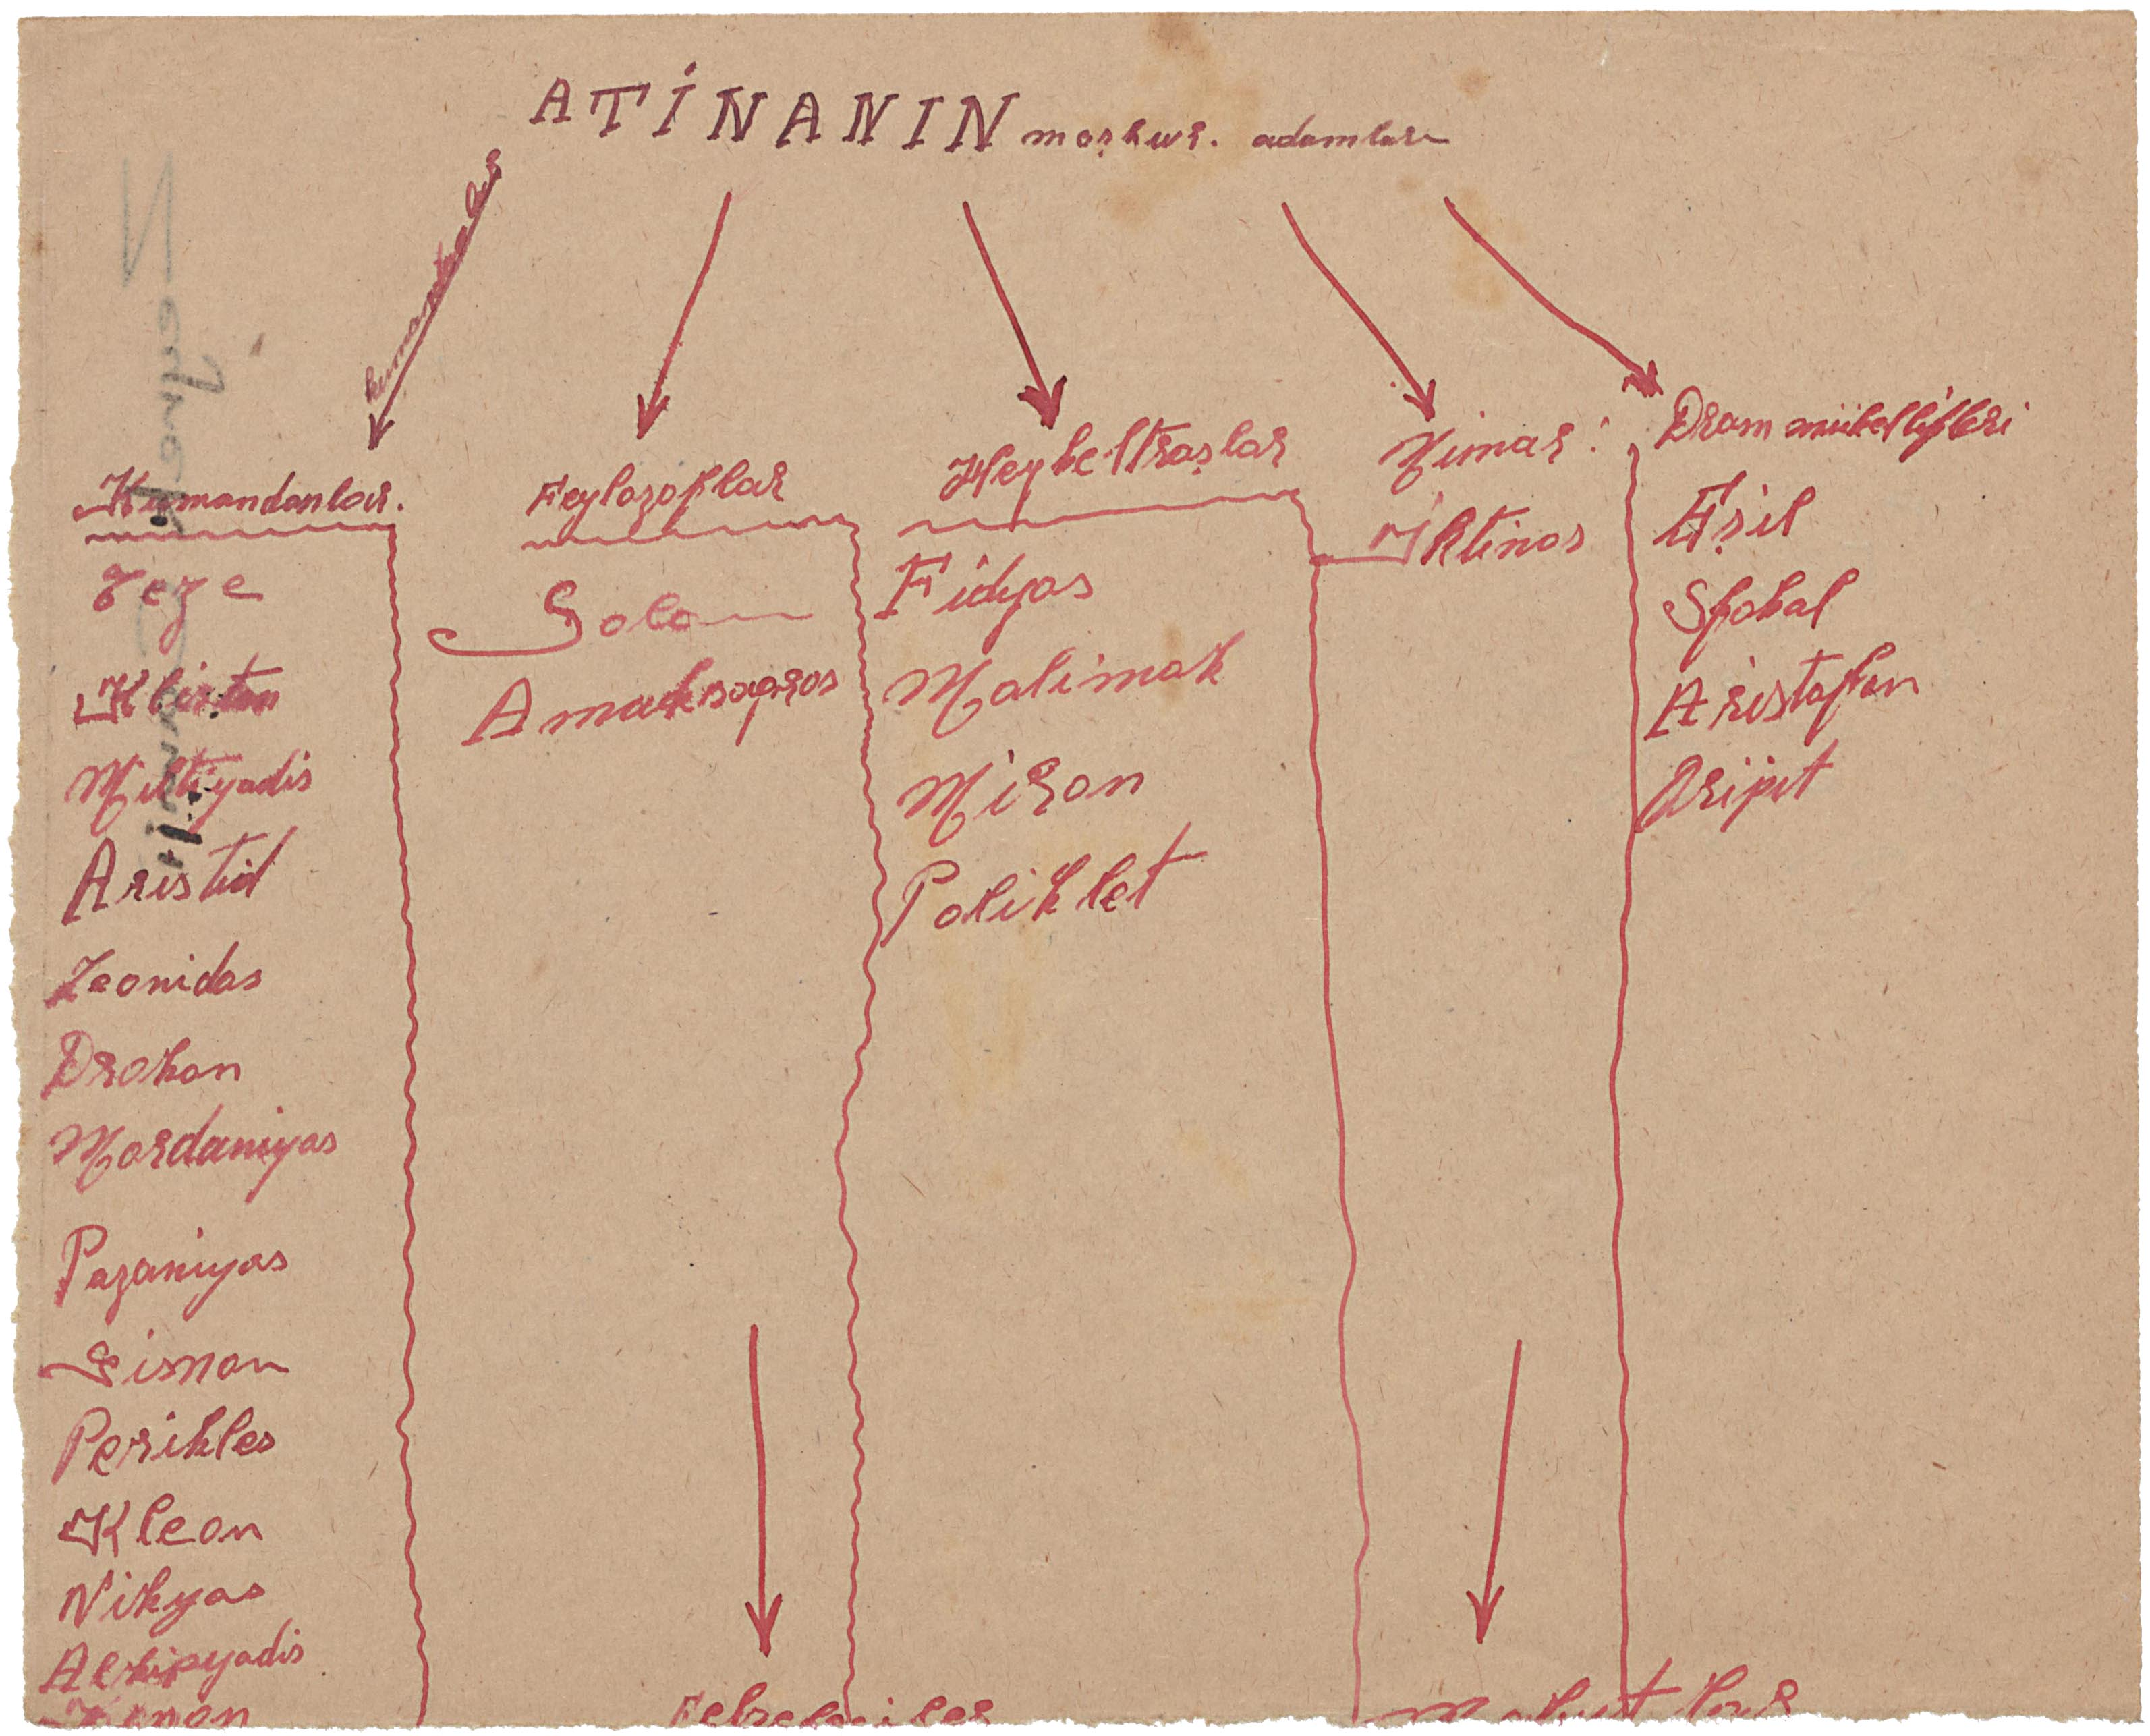 ATİNANIN meşhur. adamları
kumandanlar
Kumandanlar.
Teze
Kliston
Miltiyadis
Aristid
Leonidas
Drakon
Mardaniyas
Pazaniyas
Simon
Perikles
Kleon
Nikyas
Alkipyadis
Konon
Feylozoflar
Solon
Amaksagros
Felsefeciler
Heykeltraşlar
Fidyas
Malimak
Miron
Poliklet
Mimar:
İktinos
Dram müellifleri
Aşil
Sfokal
Aristofan
Öripit